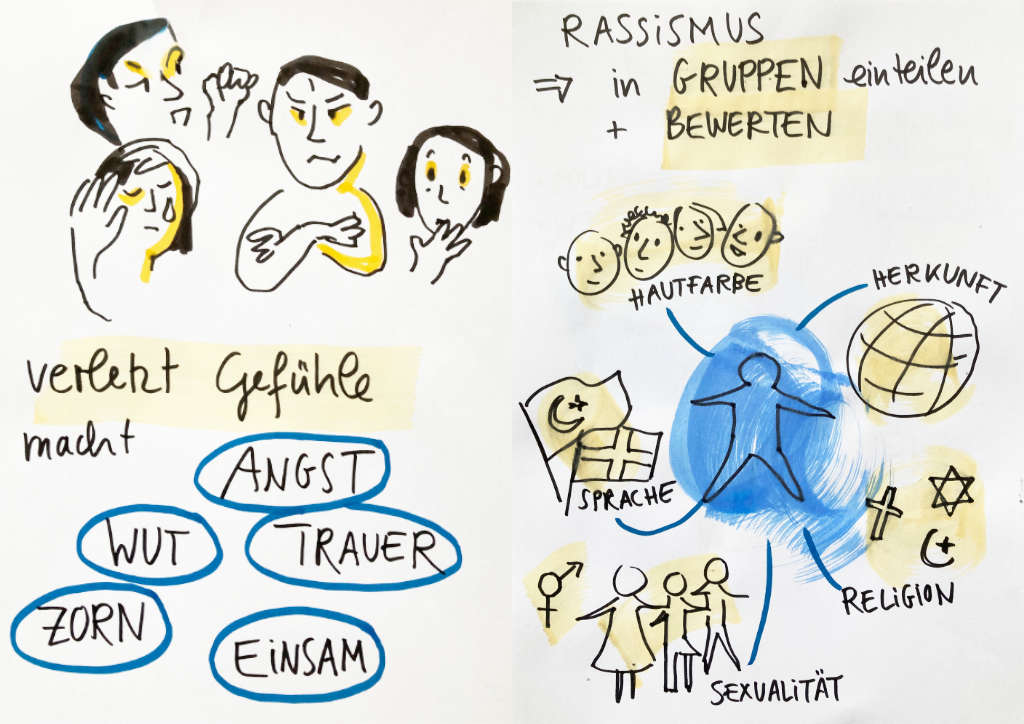 verletzt Gefühle
macht
ANGST
WUT
TRAUER
ZORN
EiNSAM
RASSiSMUS
⇒ in GRUPPEN einteilen
+ BEWERTEN
HAUTFARBE
HERKUNFT
SPRACHE
RELiGiON
SEXUALiTÄT